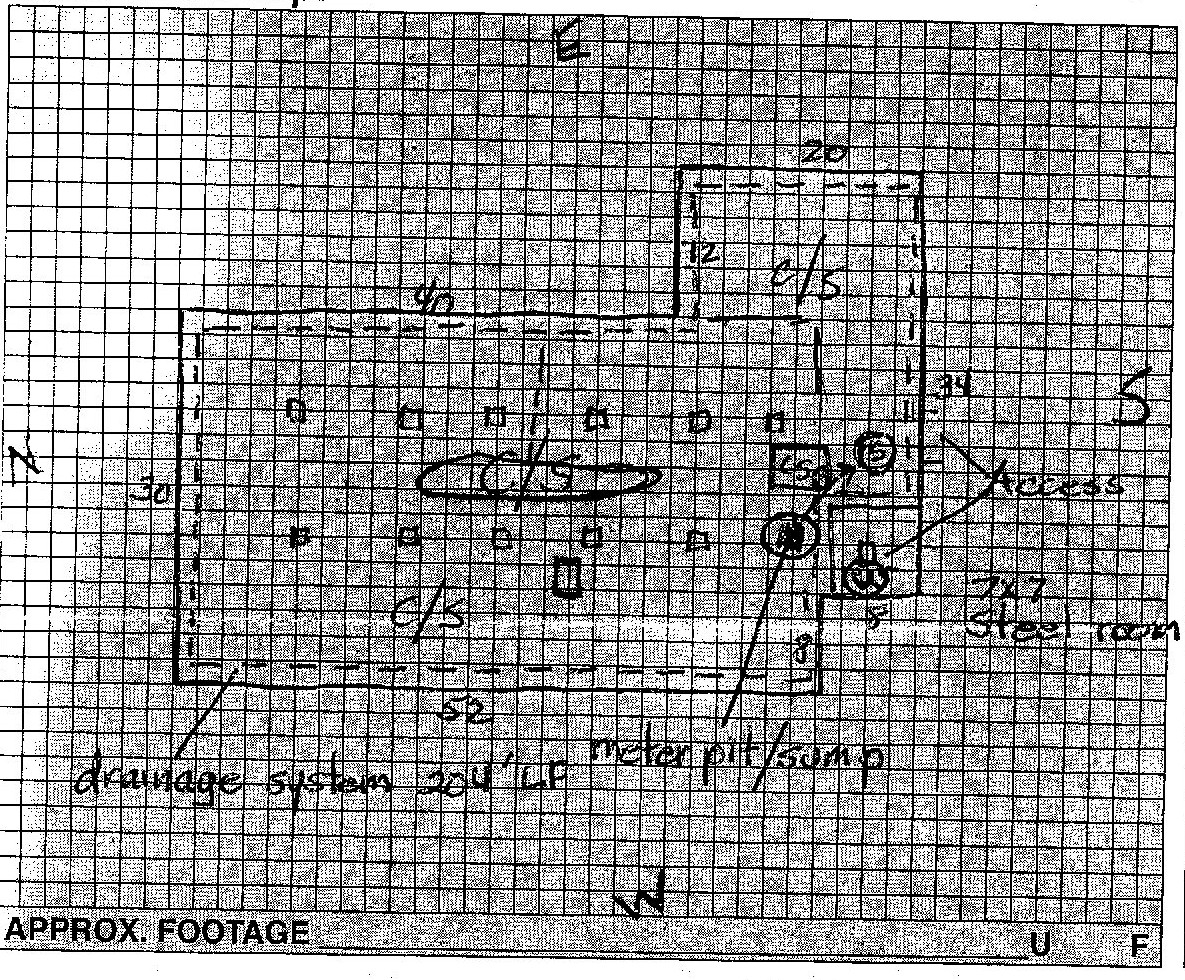 E
20
12
C/S
40
34
S
N
C/S
S
30
Access
7x7
Steel room
C/S
8
8
52
meter pit/sump
drainage system 204' LF
W
APPROX. FOOTAGE
U F